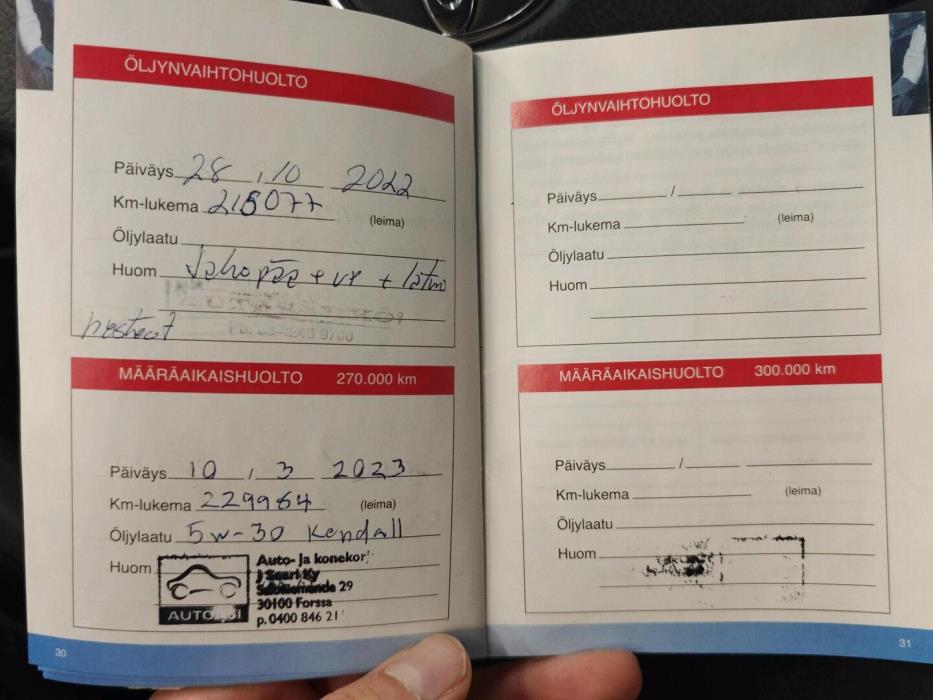 ÖLJYNVAIHTOHUOLTO
Päiväys 28 , 10 2022
Km-lukema 218077
(leima)
Öljylaatu
Huom Jakopää + vp +
MÄÄRÄAIKAISHUOLTO 270.000 km
Päiväys 10 , 3 2023
Km-lukema 229984
(leima)
Öljylaatu 5w-30 Kendall
Huom
AUTO
Auto- ja konekor
J Saari Ky
29
30100 Forssa
p. 0400 846 21
30
ÖLJYNVAIHTOHUOLTO
Päiväys /
Km-lukema
(leima)
Öljylaatu
Huom
MÄÄRÄAIKAISHUOLTO 300.000 km
Päiväys /
Km-lukema
(leima)
Öljylaatu
Huom
31